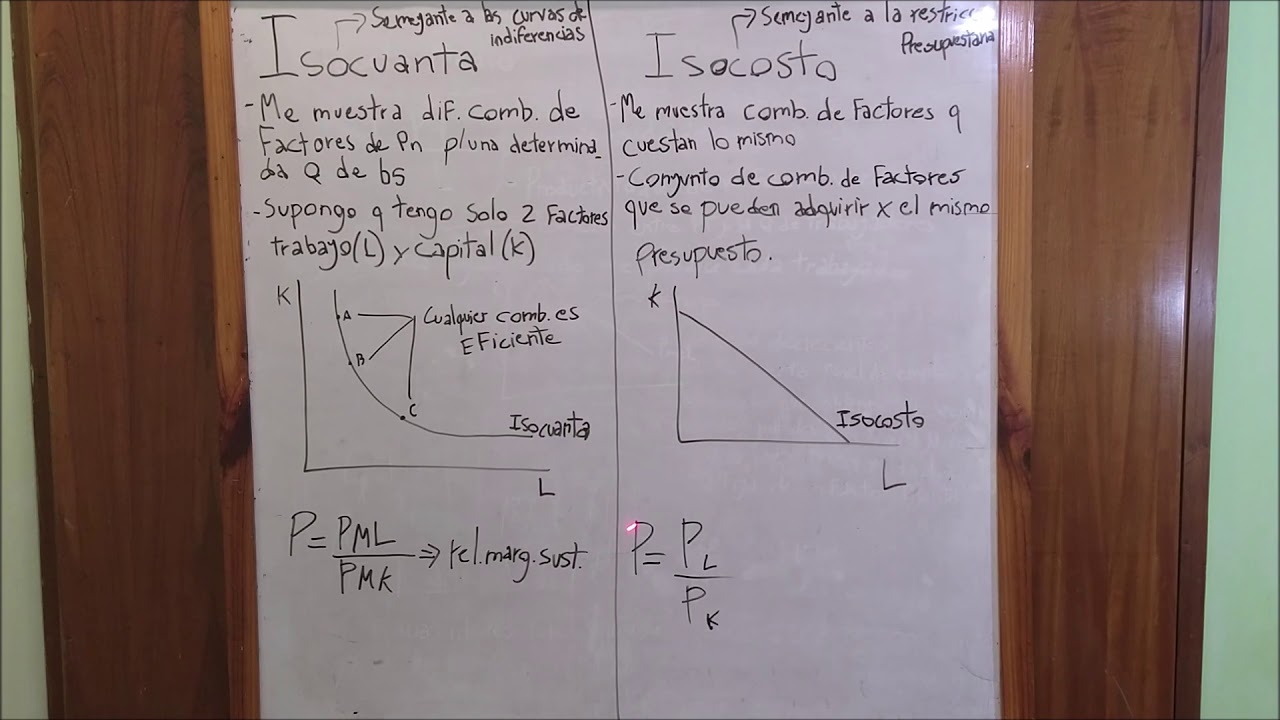 Isocuanta
Semejante a las curvas de
indiferencias
- Me muestra dif. comb. de
Factores de Pn p/una determina_
da Q de bs
- Supongo q tengo solo 2 Factores
trabajo(L) y capital (K)
K
A
B
C
Cualquier comb. es
EFiciente
Isocuanta
L
P = PML
PMK
⇒ rel. marg. sust.
Isocosto
Semejante a la restricc
Presupuestaria
- Me muestra comb. de Factores q
cuestan lo mismo
- Conjunto de comb. de Factores
que se pueden adquirir x el mismo
Presupuesto.
K
Isocosto
L
P = PL
PK